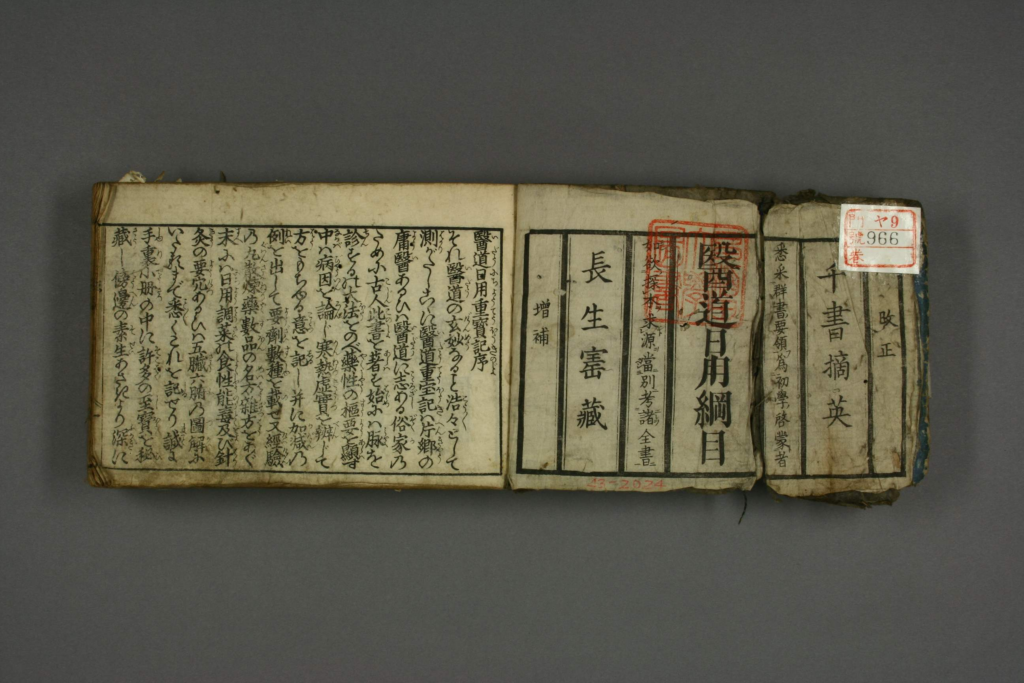 ヤ9
966
改正
千書摘英
悉采群書要領為初學啓蒙者
醫道日用綱目
如欲探本采源當別考諸全書
長生窑藏
増補
23-2924
醫道日用重寳記序
それ醫道の玄妙なると浩々として
測りがたしこゝに醫道重宝記ハ片郷の
庸醫あるひハ醫道に志ある俗家乃
ために古人此書を著を始にハ脉を
診するの法をのべ藥性の樞要を顕
中ハ病因を論し寒熱虚實を辨へて
方をもちゆる意を記し并に加減乃
例を出して要劑數種を載せ又經驗
乃丸散膏藥數品の名方雑方をあぐ
末にハ日用調菜の食性能毒及ひ針
灸の要穴あるひハ五臓六腑乃圖解に
いたるまで悉くこれを記せり誠に
手重小册の中に許多の至寳を韞
藏し